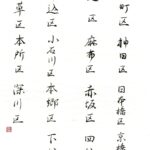 町区 神田区 日本橋区 京橋
区 麻布区 赤坂区 四
込区 小石川区 本郷区 下
草区 本所区 深川区